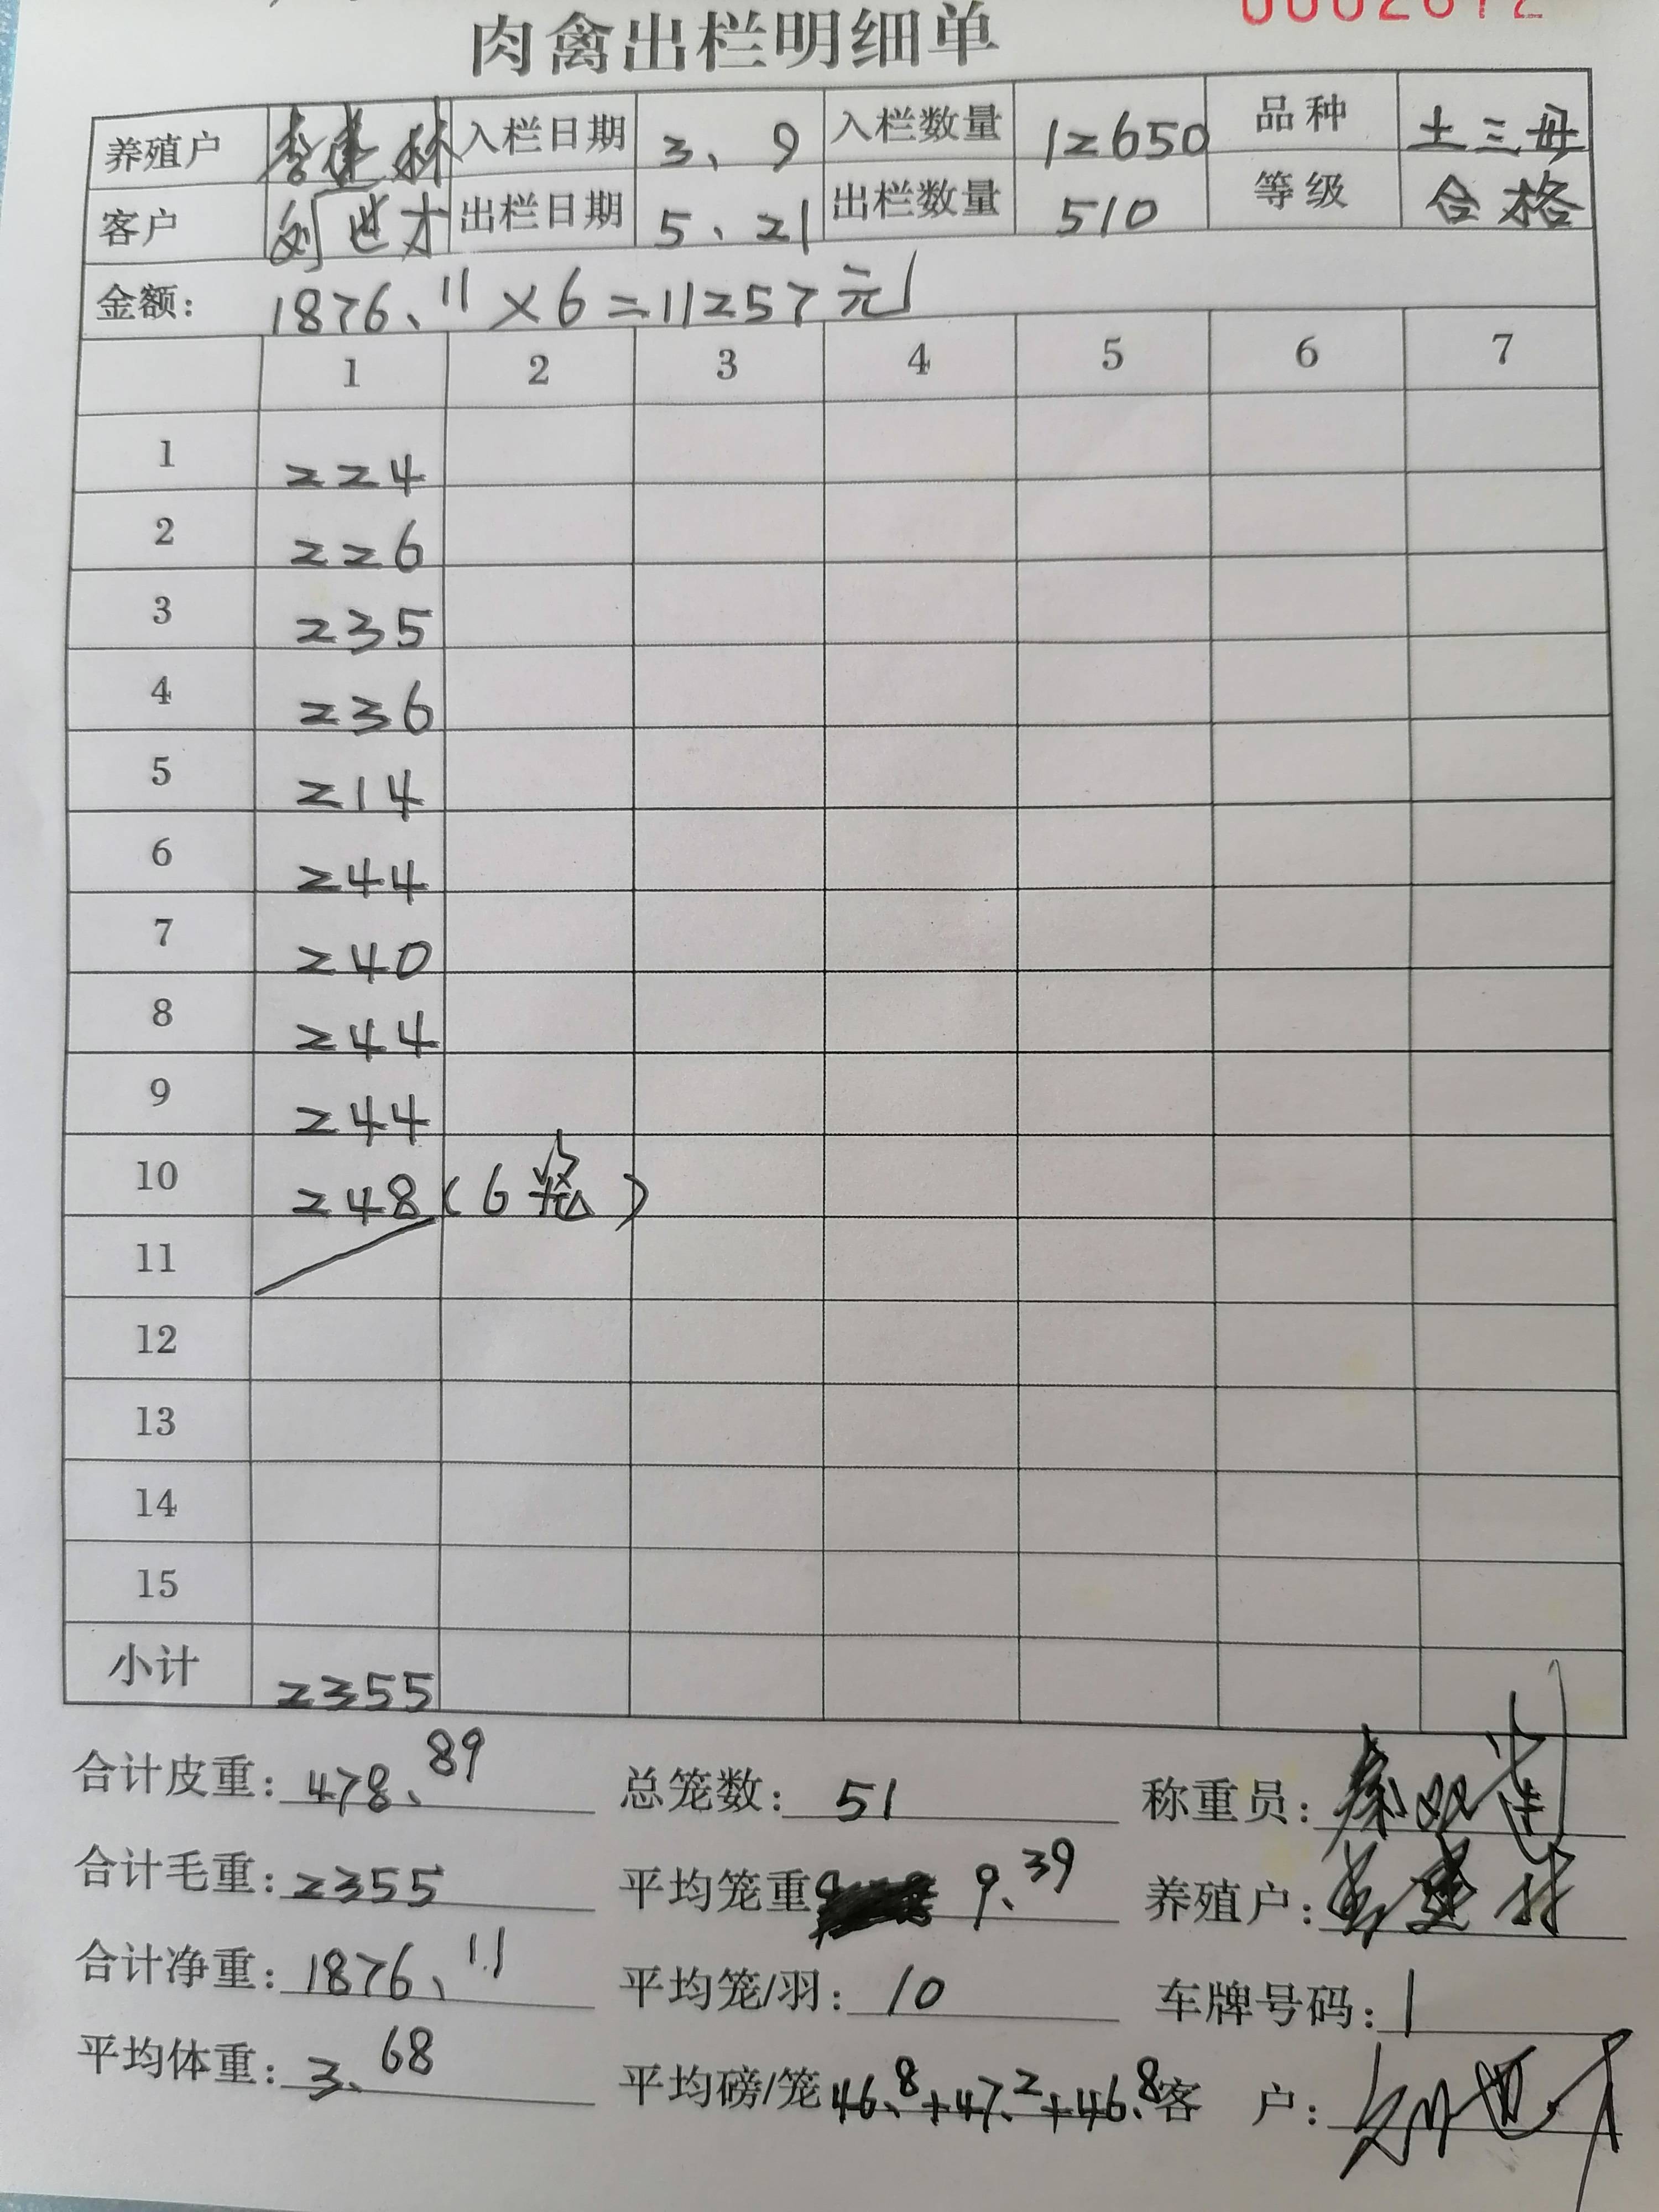 肉禽出栏明细单
养殖户 李建林 入栏日期 3、9 入栏数量 12650 品种 土三母
客户 刘世才 出栏日期 5、21 出栏数量 510 等级 合格
金额： 1876、11×6=11257元
1 2 3 4 5 6 7
1 224
2 226
3 235
4 236
5 214
6 244
7 240
8 244
9 244
10 248（6笼）
11
12
13
14
15
小计 2355
合计皮重： 478、89 总笼数： 51 称重员：
合计毛重： 2355 平均笼重 9、39 养殖户： 李建林
合计净重： 1876、11 平均笼/羽： 10 车牌号码： 1
平均体重： 3、68 平均磅/笼 46、8+47、2+46、8 客 户： 刘世才